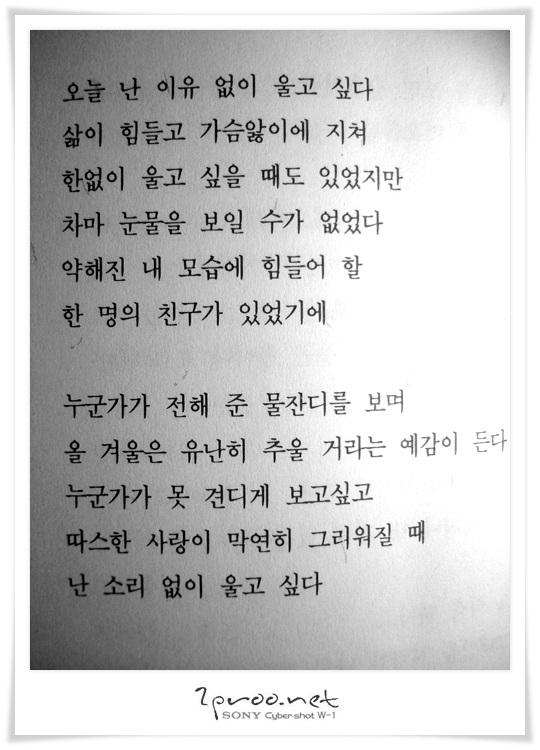 오늘 난 이유 없이 울고 싶다
삶이 힘들고 가슴앓이에 지쳐
한없이 울고 싶을 때도 있었지만
차마 눈물을 보일 수가 없었다
약해진 내 모습에 힘들어 할
한 명의 친구가 있었기에
누군가가 전해 준 물잔디를 보며
올 겨울은 유난히 추울 거라는 예감이 든다
누군가가 못 견디게 보고싶고
따스한 사랑이 막연히 그리워질 때
난 소리 없이 울고 싶다
2proo.net
SONY Cyber-shot W-1